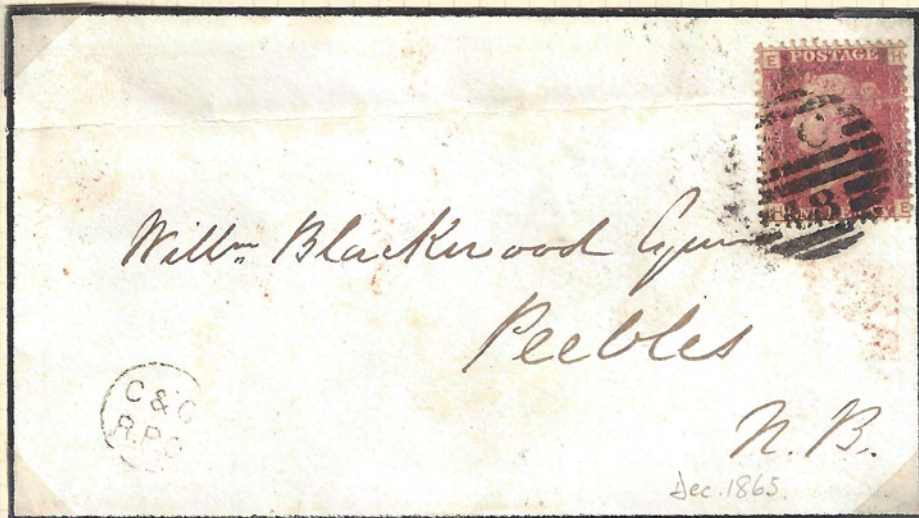 E POSTAGE H
C
18
H E
Willm Blackwood Esqre
Peebles
C & C
R.P.O
N. B.
Dec. 1865.